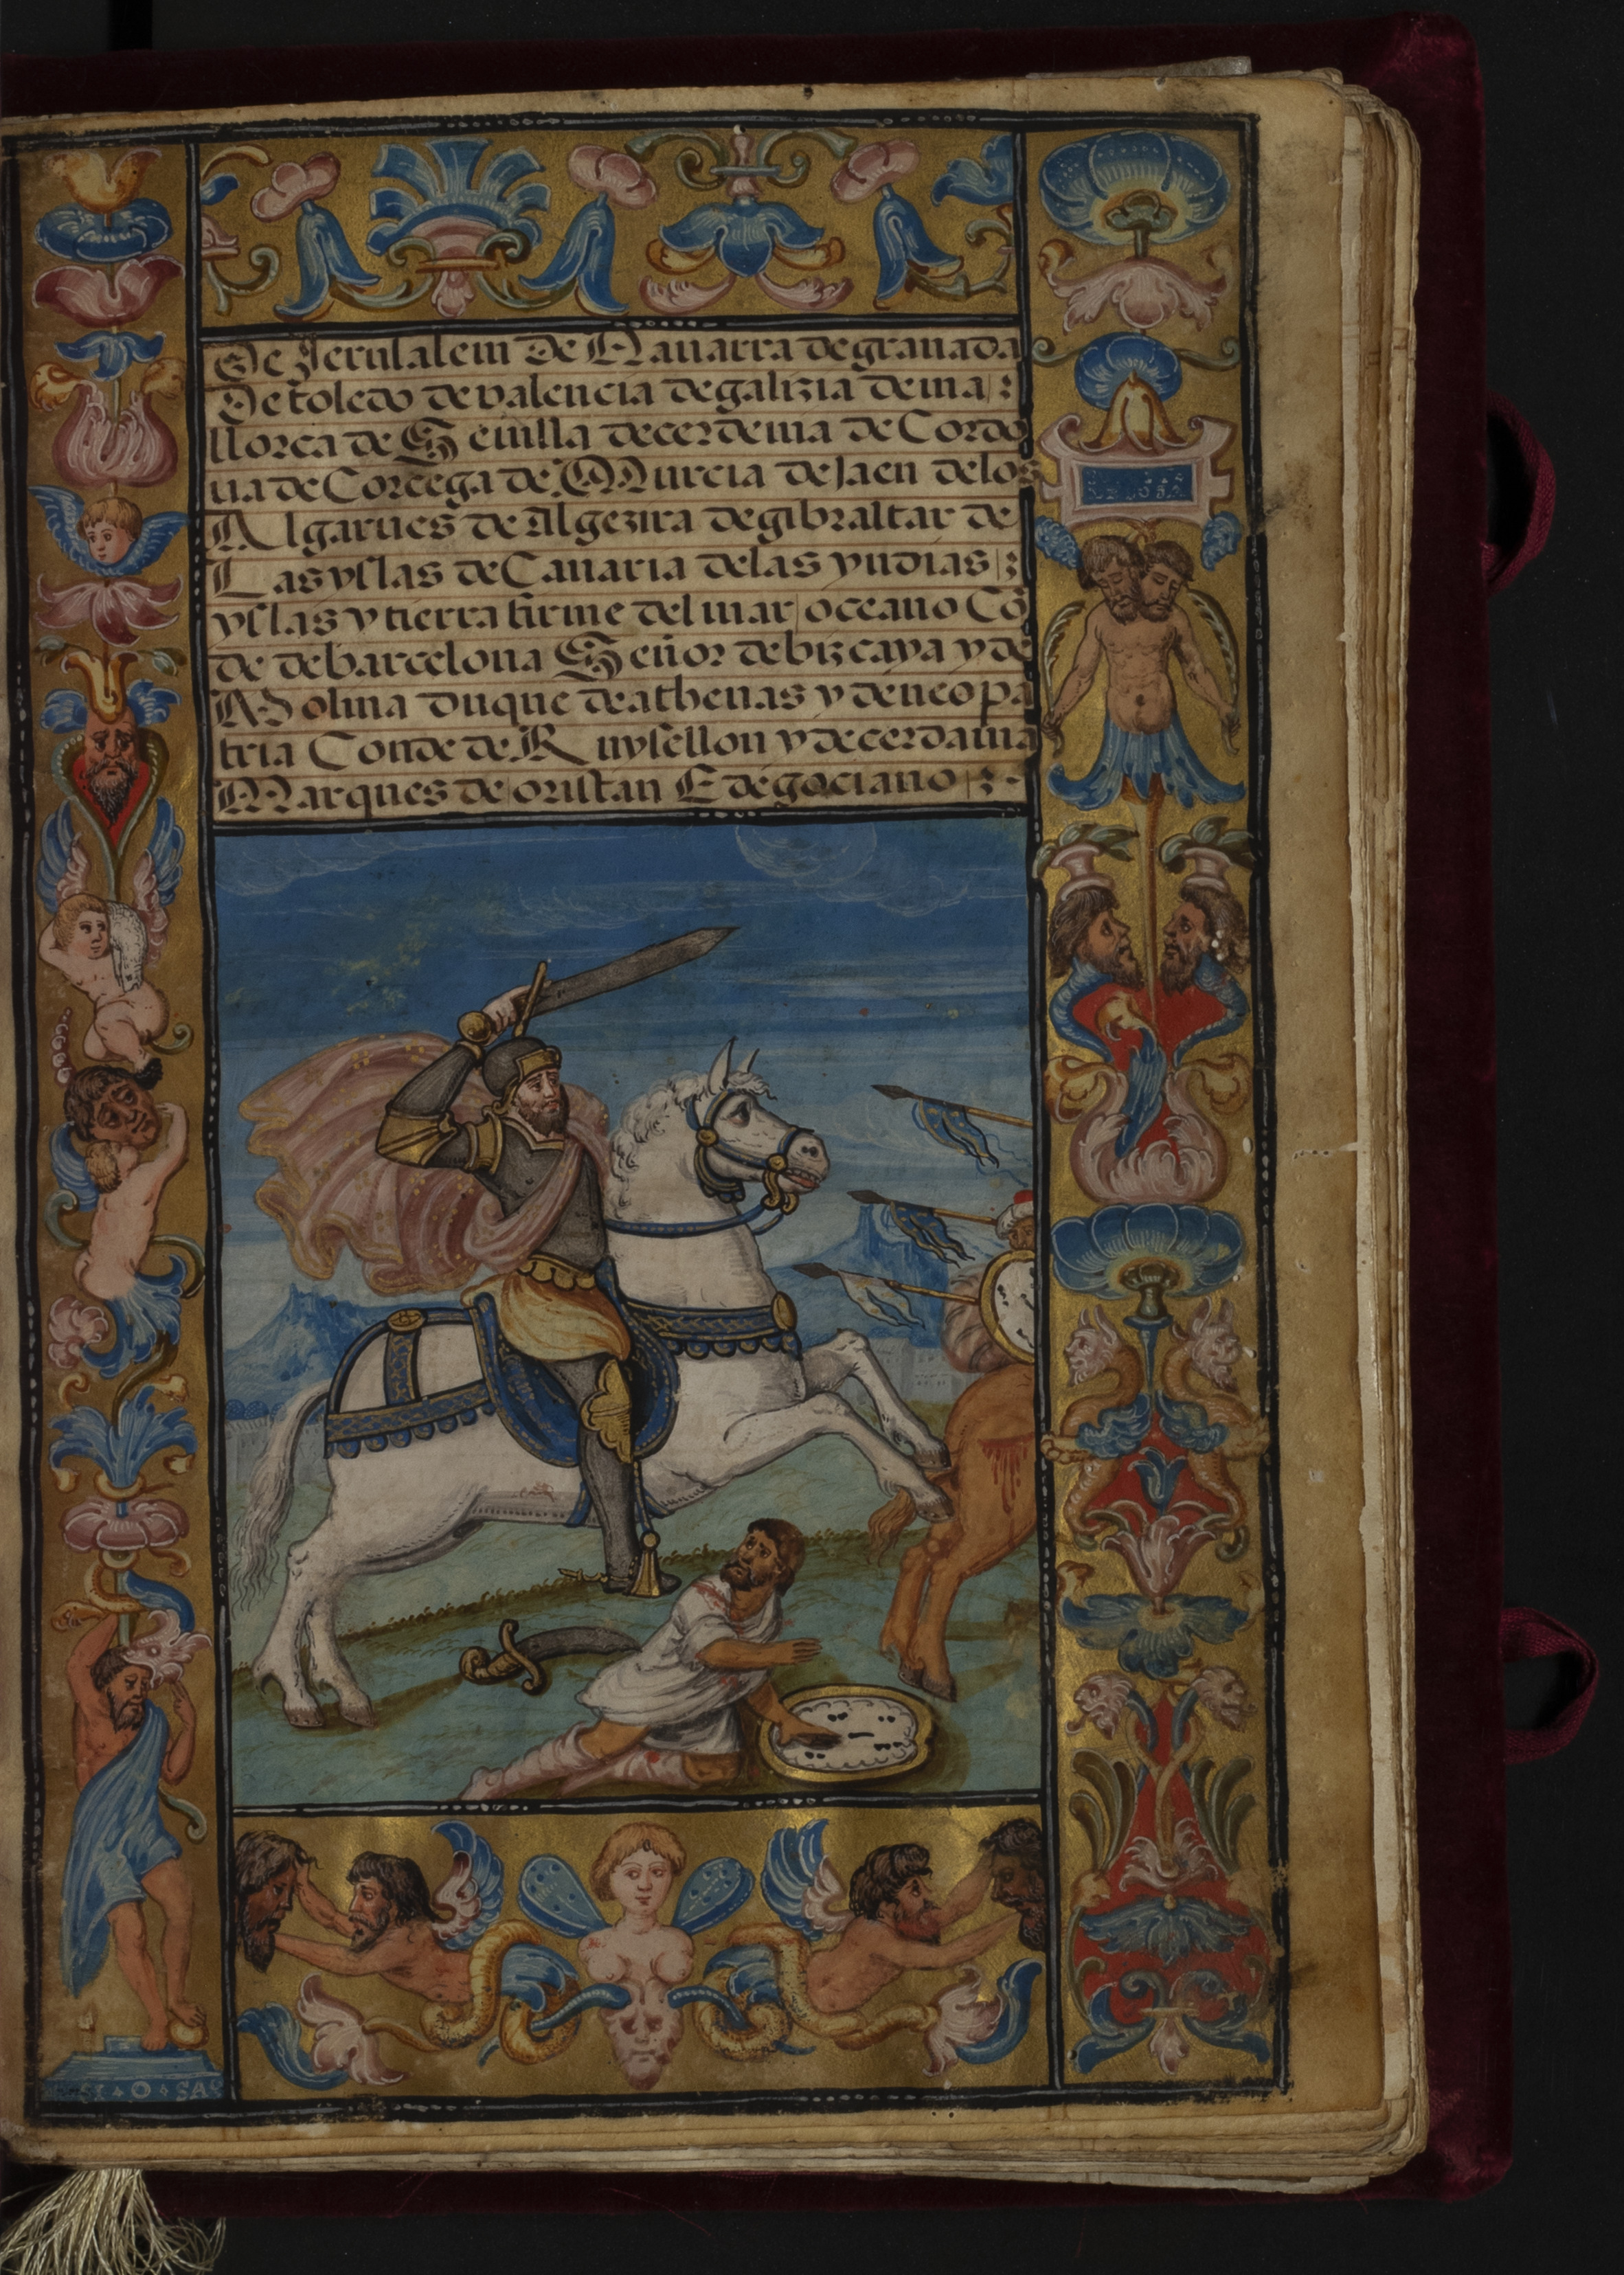 De Jerusalem De Nauarra de granada
De toledo de valencia de galizia de ma
llorca de Seuilla de cerdenia de Cordo
ua de Corcega de Murcia de Jaen de los
Algarues de Algezira de gibraltar de
Las yslas de Canaria de las yndias
yslas y tierra firme del mar oceano Cõ
de de barcelona Señor de bizcaya y de
Molina duque de athenas y de neopa
tria Conde de Ruysellon y de cerdania
Marques de oristan E de gociano
O SA